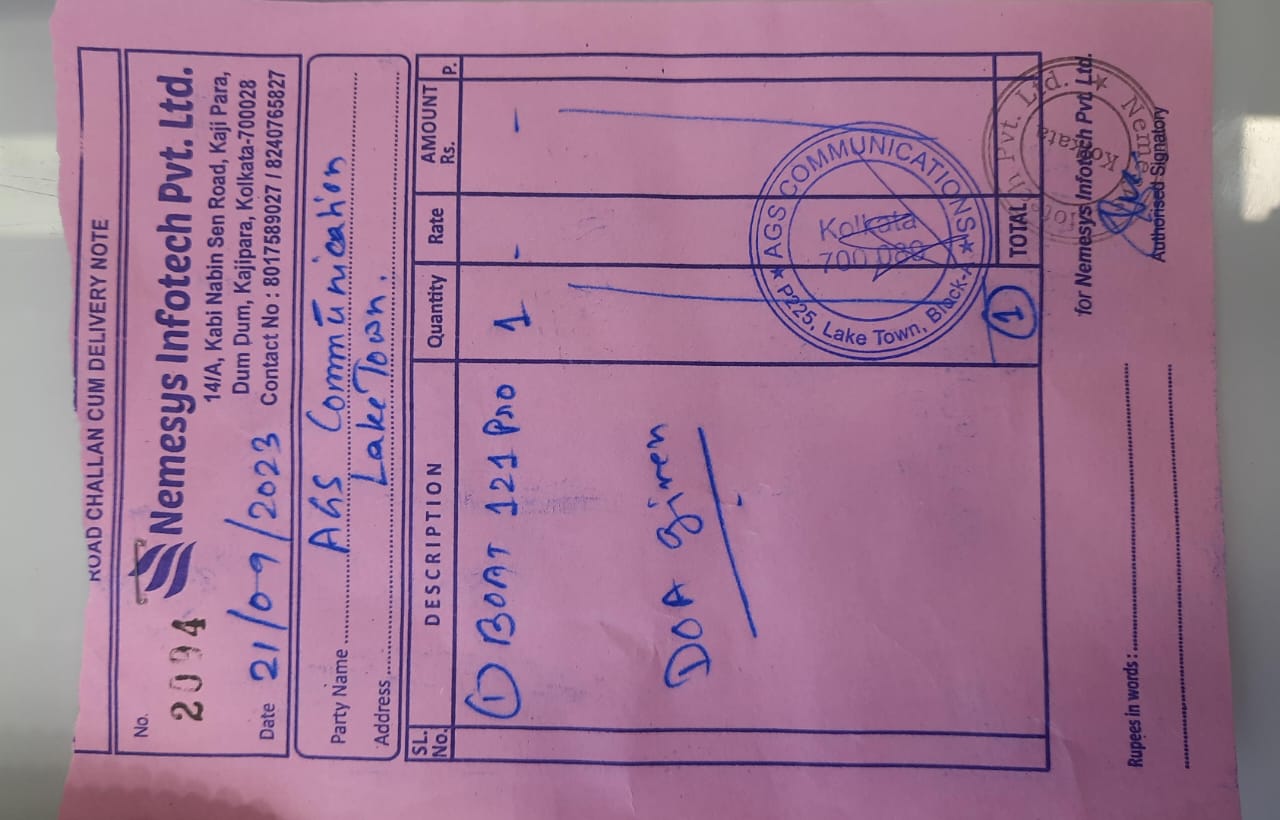 ROAD CHALLAN CUM DELIVERY NOTE
No.
2094
Nemesys Infotech Pvt. Ltd.
14/A, Kabi Nabin Sen Road, Kaji Para,
Dum Dum, Kajipara, Kolkata-700028
Date 21/09/2023 Contact No : 8017589027 / 8240765827
Party Name AGS Communication
Address Lake Town.
SL. No. DESCRIPTION Quantity Rate AMOUNT Rs. P.
① BOAT 121 Pro 1 - -
DOA given
★ AGS COMMUNICATIONS ★
P225, Lake Town, Block-A
Kolkata
700 089
① TOTAL
for Nemesys Infotech Pvt. Ltd.
Nemesys Infotech Pvt. Ltd. ★
Kolkata
Rupees in words :
Authorised Signatory